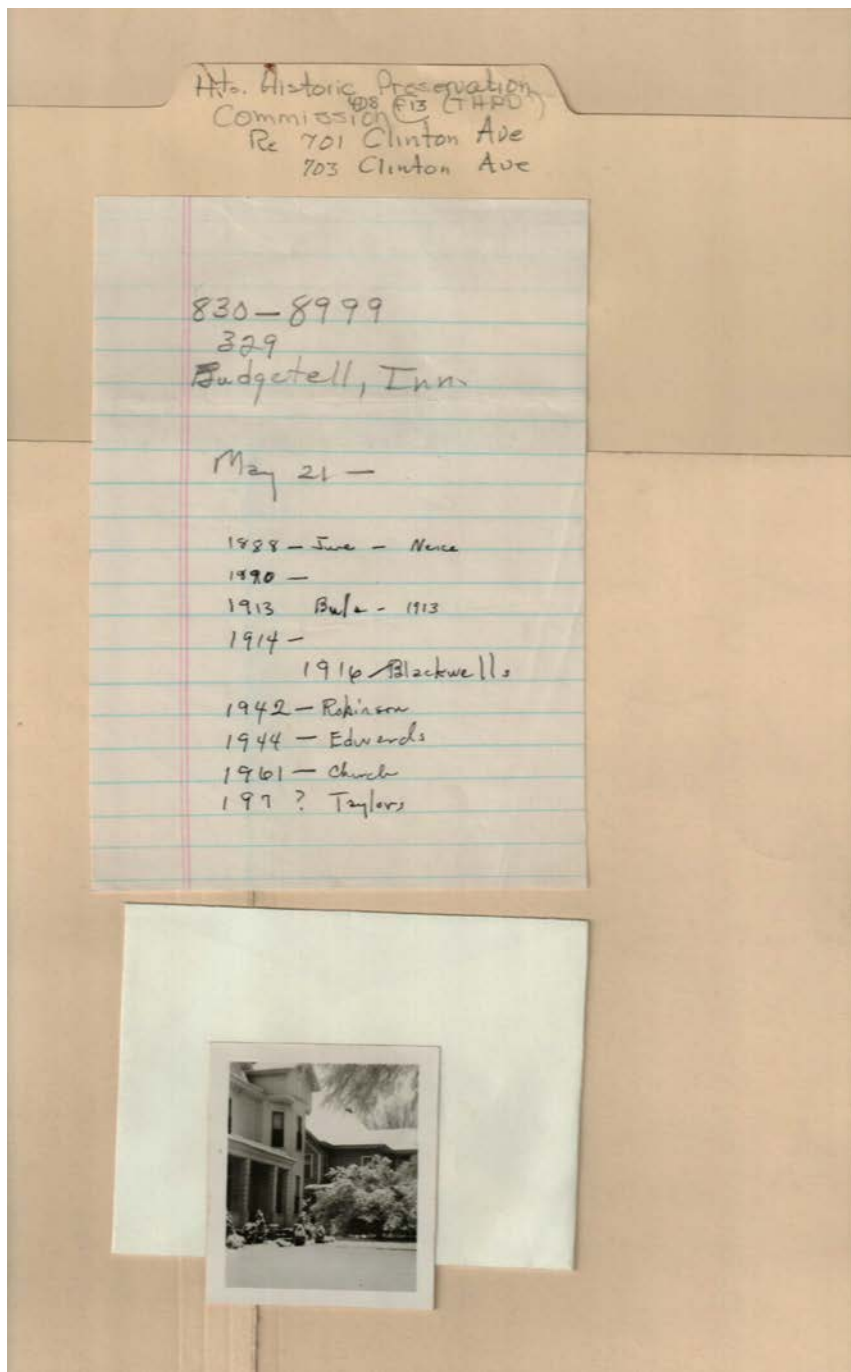 Hts. Historic Preservation
Commission (THPD)
Re 701 Clinton Ave
703 Clinton Ave
830-8999
329
Budgetell, Inn.
May 21 —
1888 - June - Nance
1890 —
1913 - 1913
1914 -
1916 Blackwells
1942 - Robinson
1944 - Edwards
1961 - Church
197 ? Taylors